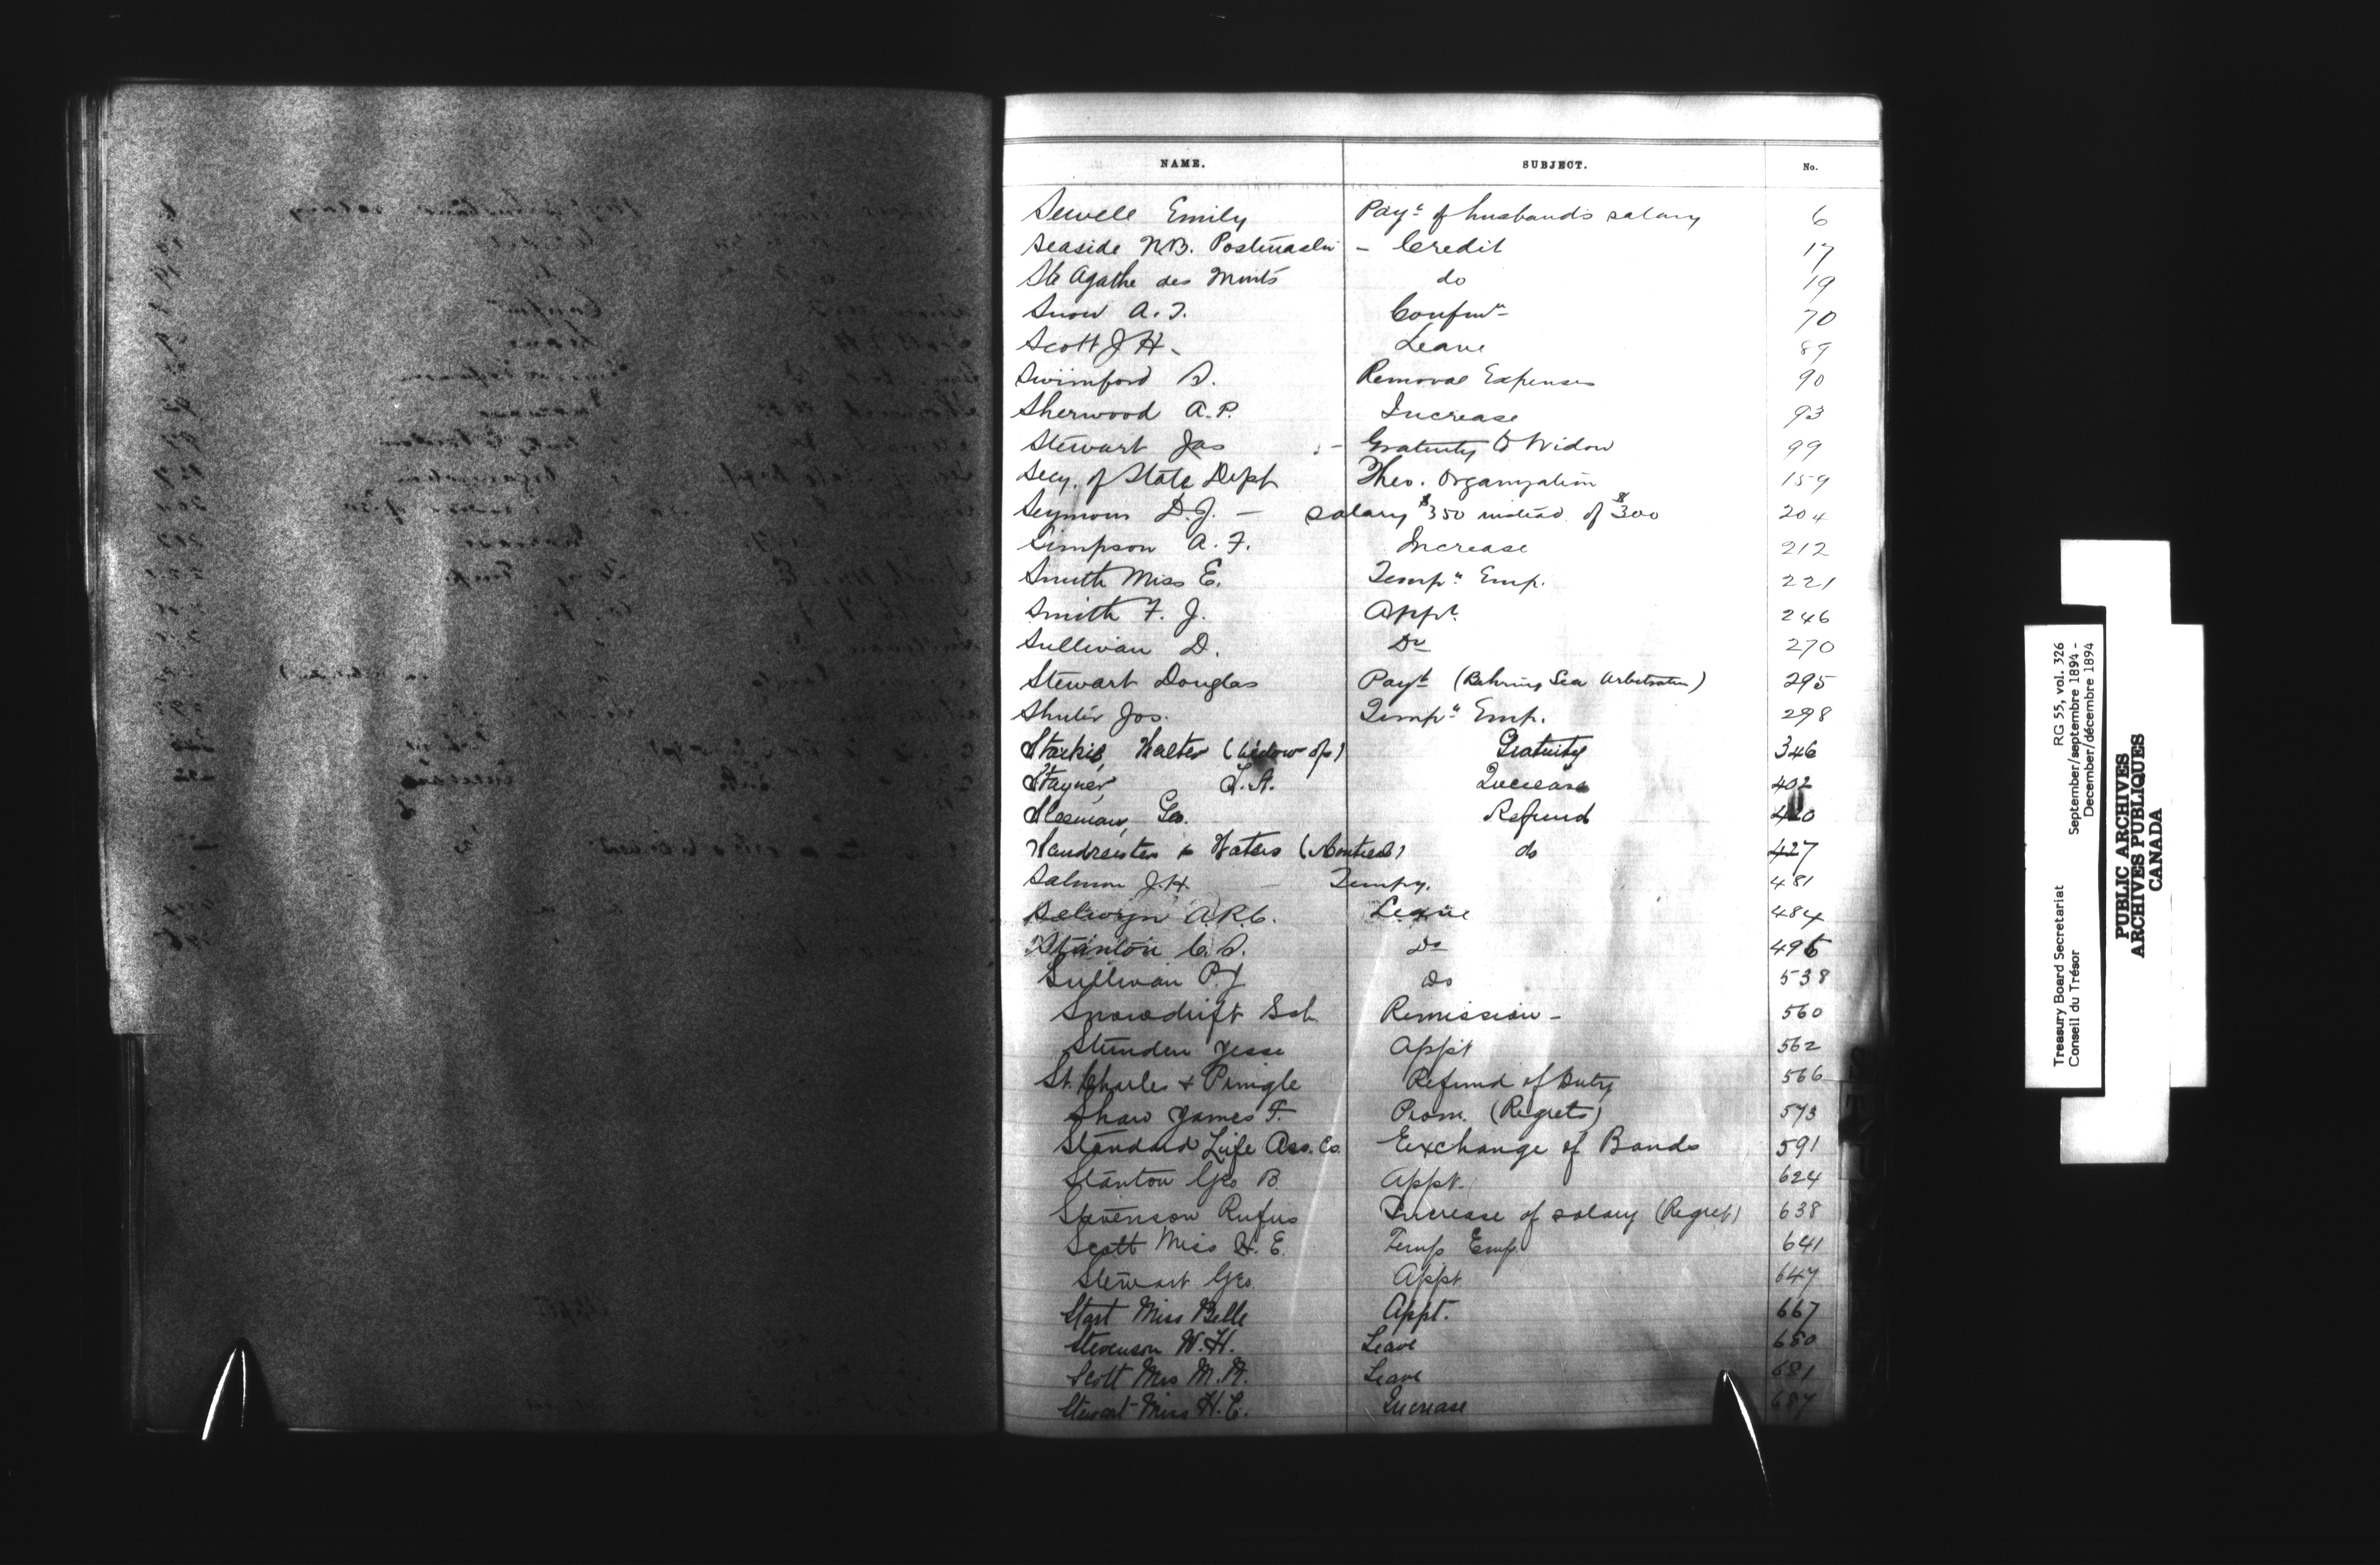 NAME. SUBJECT. No.
Sewell Emily Payt of husband's salary 6
Seaside N.B. Postmaster - Credit 17
Ste Agathe des Monts do 19
Snow A. T. Confmn 70
Scott J H - Leave 89
Swimford S. Removal Expenses 90
Sherwood A. P. Increase 93
Stewart Jas - Gratuity to Widow 99
Secy. of State Dept Theo. Organization 159
Seymour D. J. - salary $350 instead of $300 204
Simpson A. F. Increase 212
Smith Miss E. Tempy Emp. 221
Smith F. J. Appt. 246
Sullivan D. Do 270
Stewart Douglas Payt (Behring Sea Arbitration) 295
Shuter Jos. Tempy Emp. 298
Starkie, Walter (Widow of) Gratuity 346
Stayner, T. A. Increase 402
Sleeman, Geo. Refund 420
& Waters (Montreal) do 427
Salmon J. H. Tempy. 481
Selwyn A. R. C. Leave 484
Stanton C. S. Do 495
Sullivan P. J. do 538
Snowdrift Sch. Remission - 560
Stunden Jesse Appt 562
St. Charles & Pringle Refund of Duty 566
Shaw James F. Prom. (Regrets) 573
Standard Life Ass. Co. Exchange of Bonds 591
Stanton Geo B. Appt. 624
Stevenson Rufus Increase of salary (Regret) 638
Scott Miss H. E. Temp Emp. 641
Stewart Geo. Appt 647
Start Miss Belle Appt. 667
Stevenson W. H. Leave 680
Scott Mrs M. N. Leave 681
Stewart Miss H. C. Increase 687
Treasury Board Secretariat RG 55, vol. 326
Conseil du Trésor September/septembre 1894 -
December/décembre 1894
PUBLIC ARCHIVES
ARCHIVES PUBLIQUES
CANADA